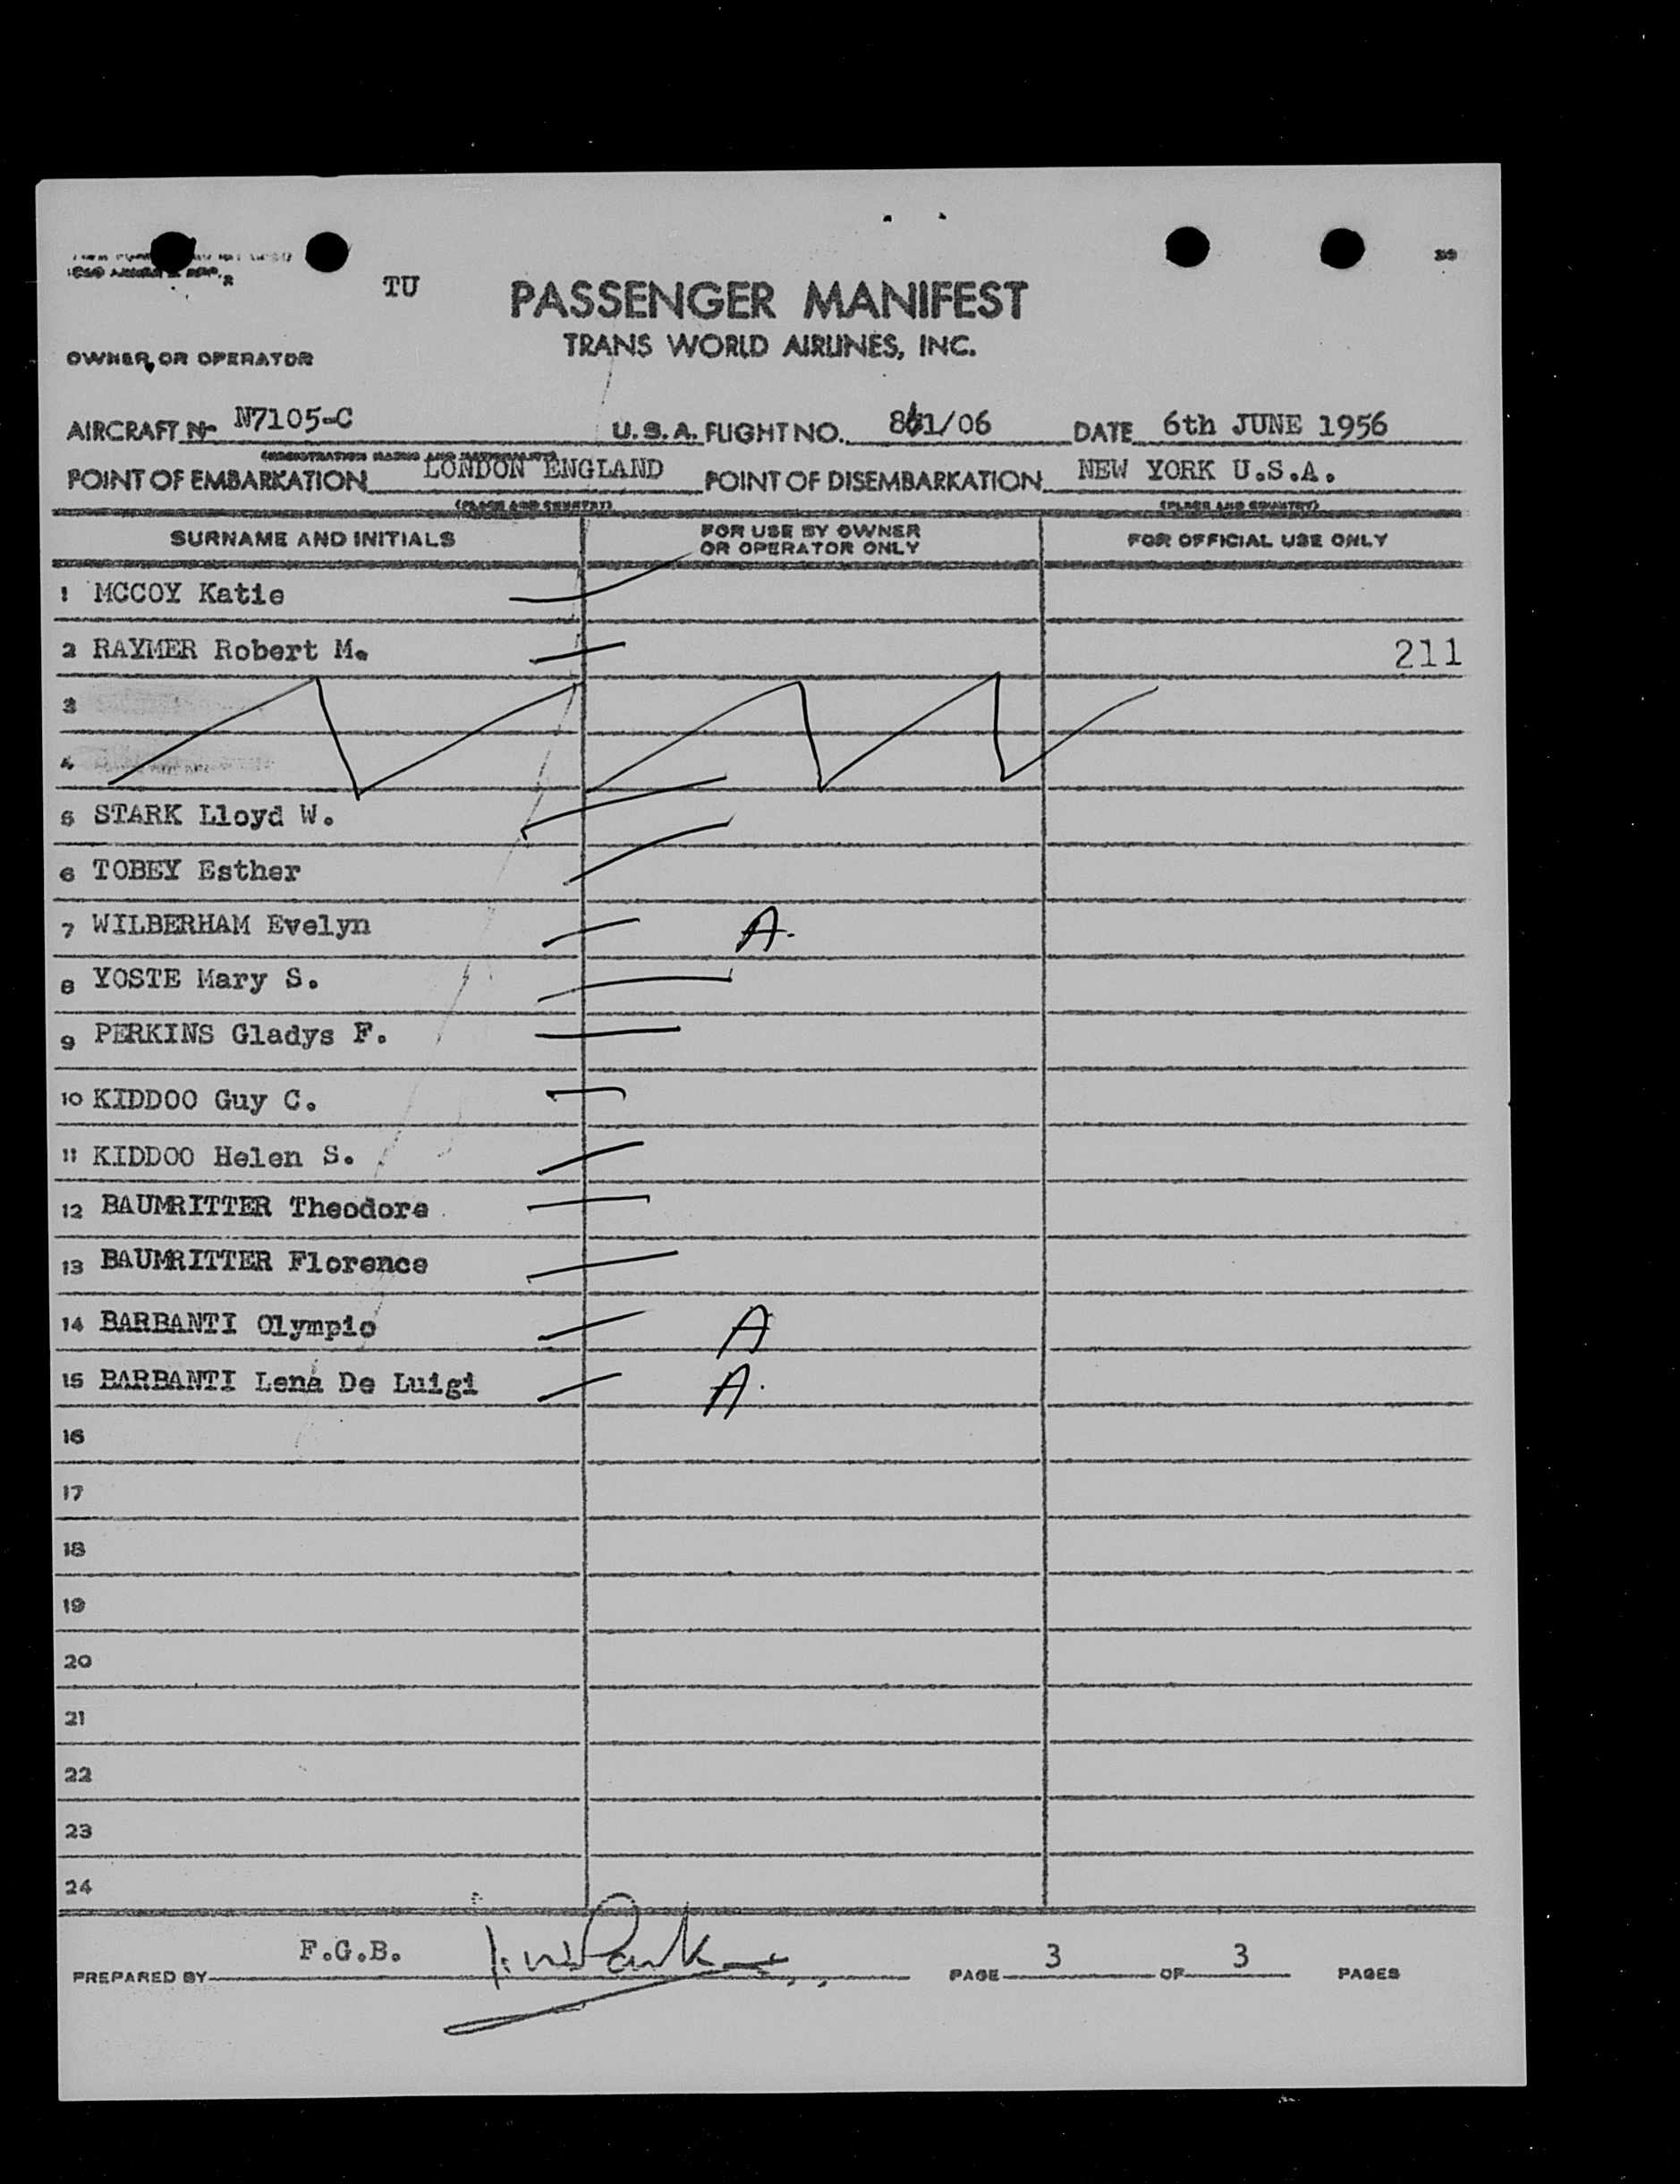 TU
PASSENGER MANIFEST
TRANS WORLD AIRLINES, INC.
OWNER OR OPERATOR
AIRCRAFT No N7105-C U.S.A. FLIGHT NO. 861/06 DATE 6th JUNE 1956
(REGISTRATION MARKS AND NATIONALITY)
POINT OF EMBARKATION LONDON ENGLAND POINT OF DISEMBARKATION NEW YORK U.S.A.
(PLACE AND COUNTRY) (PLACE AND COUNTRY)
SURNAME AND INITIALS FOR USE BY OWNER OR OPERATOR ONLY FOR OFFICIAL USE ONLY
1 MCCOY Katie
2 RAYMER Robert M. 211
3
4
5 STARK Lloyd W.
6 TOBEY Esther
7 WILBERHAM Evelyn A.
8 YOSTE Mary S.
9 PERKINS Gladys F.
10 KIDDOO Guy C.
11 KIDDOO Helen S.
12 BAUMRITTER Theodore
13 BAUMRITTER Florence
14 BARBANTI Olympio A
15 BARBANTI Lena De Luigi A.
16
17
18
19
20
21
22
23
24
PREPARED BY F.G.B. PAGE 3 OF 3 PAGES